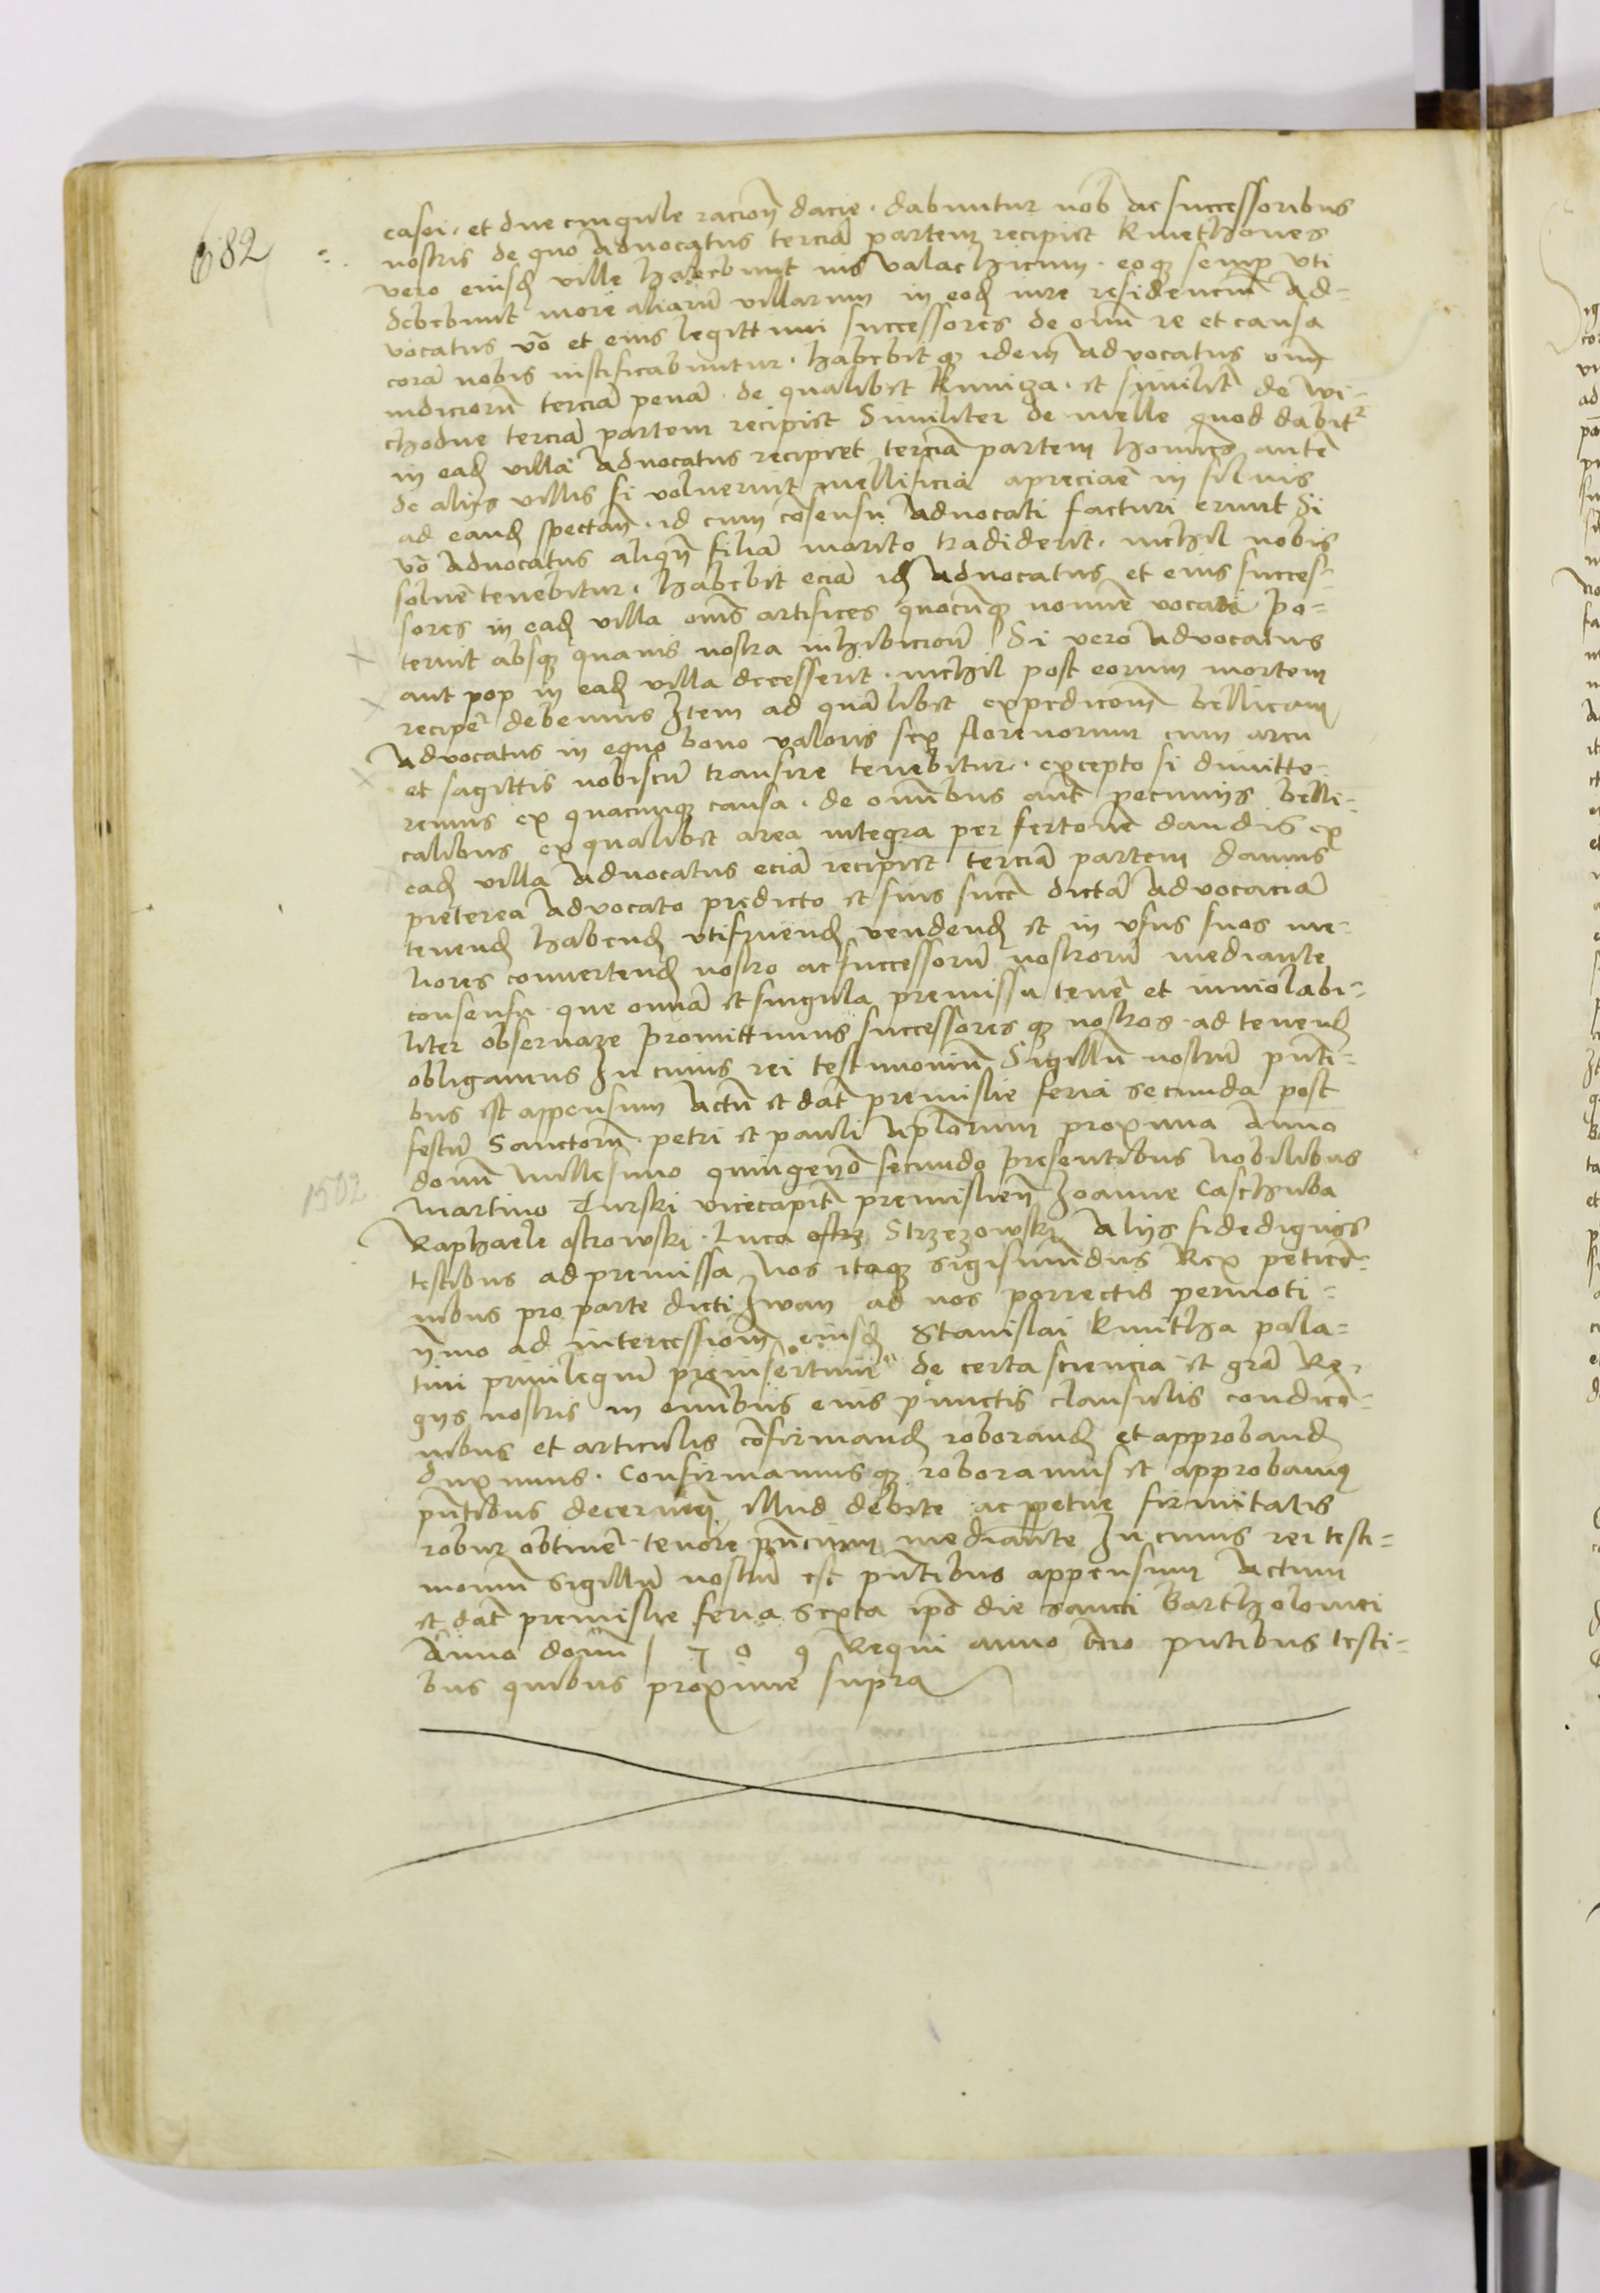 682
casei · et due cingule racioñ dacie · dabuntur nob ac successoribus
nostris de quo Advocatus terciã partem recipiet Kmethones
vero eiusđ ville habebunt ius valachicum · eoqз semp vti
debebunt more aliarũ villarum in eođ iure residenciũ Ad-
vocatus vo et eius legittimi successores de omni re et causa
corã nobis iustificabuntur · habebitqз idem advocatus omĩ
iudiciorũ terciã penã · de qualibet Kuniza · et similitẽ de wi-
chodne terciã partem recipiet Similiter de melle quod dabitr
in eađ villa Advocatus recipiet terciã partem homines autẽ
de alijs villis si voluerint mellificia apreciaẽ in siluis
ad eanđ spectañ · id cum cõsensu Advocati facturi erunt Si
vo Advocatus aliqñ filiã marito tradiderit · nichil nobis
soluẽ tenebitur · habebit eciã iđ Advocatus et eius succes-
sores in eađ villa oms artifices quocũqз nomine vocati po-
terint absqз quauis nostra inhibicionẽ Si vero Advocatus
aut pop in eađ villa decesserit · nichil post eorum mortem
recipe debemus Item ad quãlibet expedicõm bellicam
Advocatus in equo bono valoris sex florenorum cum arcu
et sagittis nobiscũ transire tenebitur · excepto si dimitte-
remus ex quacunqз causa · de omĩbus aut pecunijs belli-
calibus ex qualibet area integra per fertonẽ dandis ex
eađ villa Advocatus eciã recipiet terciã partem damus
pieterea Advocato predicto et suis succ dictã Advocaciã
tenenđ habenđ vtifruenđ vendenđ et in vsus suos me-
liores convertenđ nostro ac successorũ nostrorũ mediante
consensu · que omiã et singula premissa tenẽ et inviolabi-
liter obseruare promittimus successores qз nostros · ad tenenđ
obligamus In cuius rei testimoniũ Sigillũ nostrũ pnti-
bus est appensum Actũ et dat premislie feria secunda post
festũ Sanctorũ · petri et pauli Aplorum proxima Anno
domĩ Millesimo quingenõ secundo presentibus Nobilibus
1502
Martino Turski vicecapit premislieñ Joanne Caschuba
Raphaele ostrowski · Luca ostrz Strzezowski Alijs fidedignis
testibus ad premissa Nos itaqз Sigismundus Rex peticõ-
nibus pro parte dicti Iwan ad nos porrectis permoti-
ñmo ad intercessioñ eiusđ Stanislai Kmitha pala-
tini priuilegiũ preinsertum de certa sciencia et grã Re-
gijs nostris in omĩbus eius punctis clausulis condicõ-
nibus et articulis cõfirmanđ roboranđ et approbanđ
duximus · Confirmamusqз roboramus et approbamus
pntibus decerneñ illud debite ac ppetue firmitatis
robur obtinẽ · tenore pñcium mediante In cuius rei testi-
monium sigillũ nostrũ est pntibus appensum Actum
et dat premislie feria sexta ipo die sancti Bartholomei
Anno domĩ 1509 Regni anno tcio pntibus testi-
bus quibus proxime supra